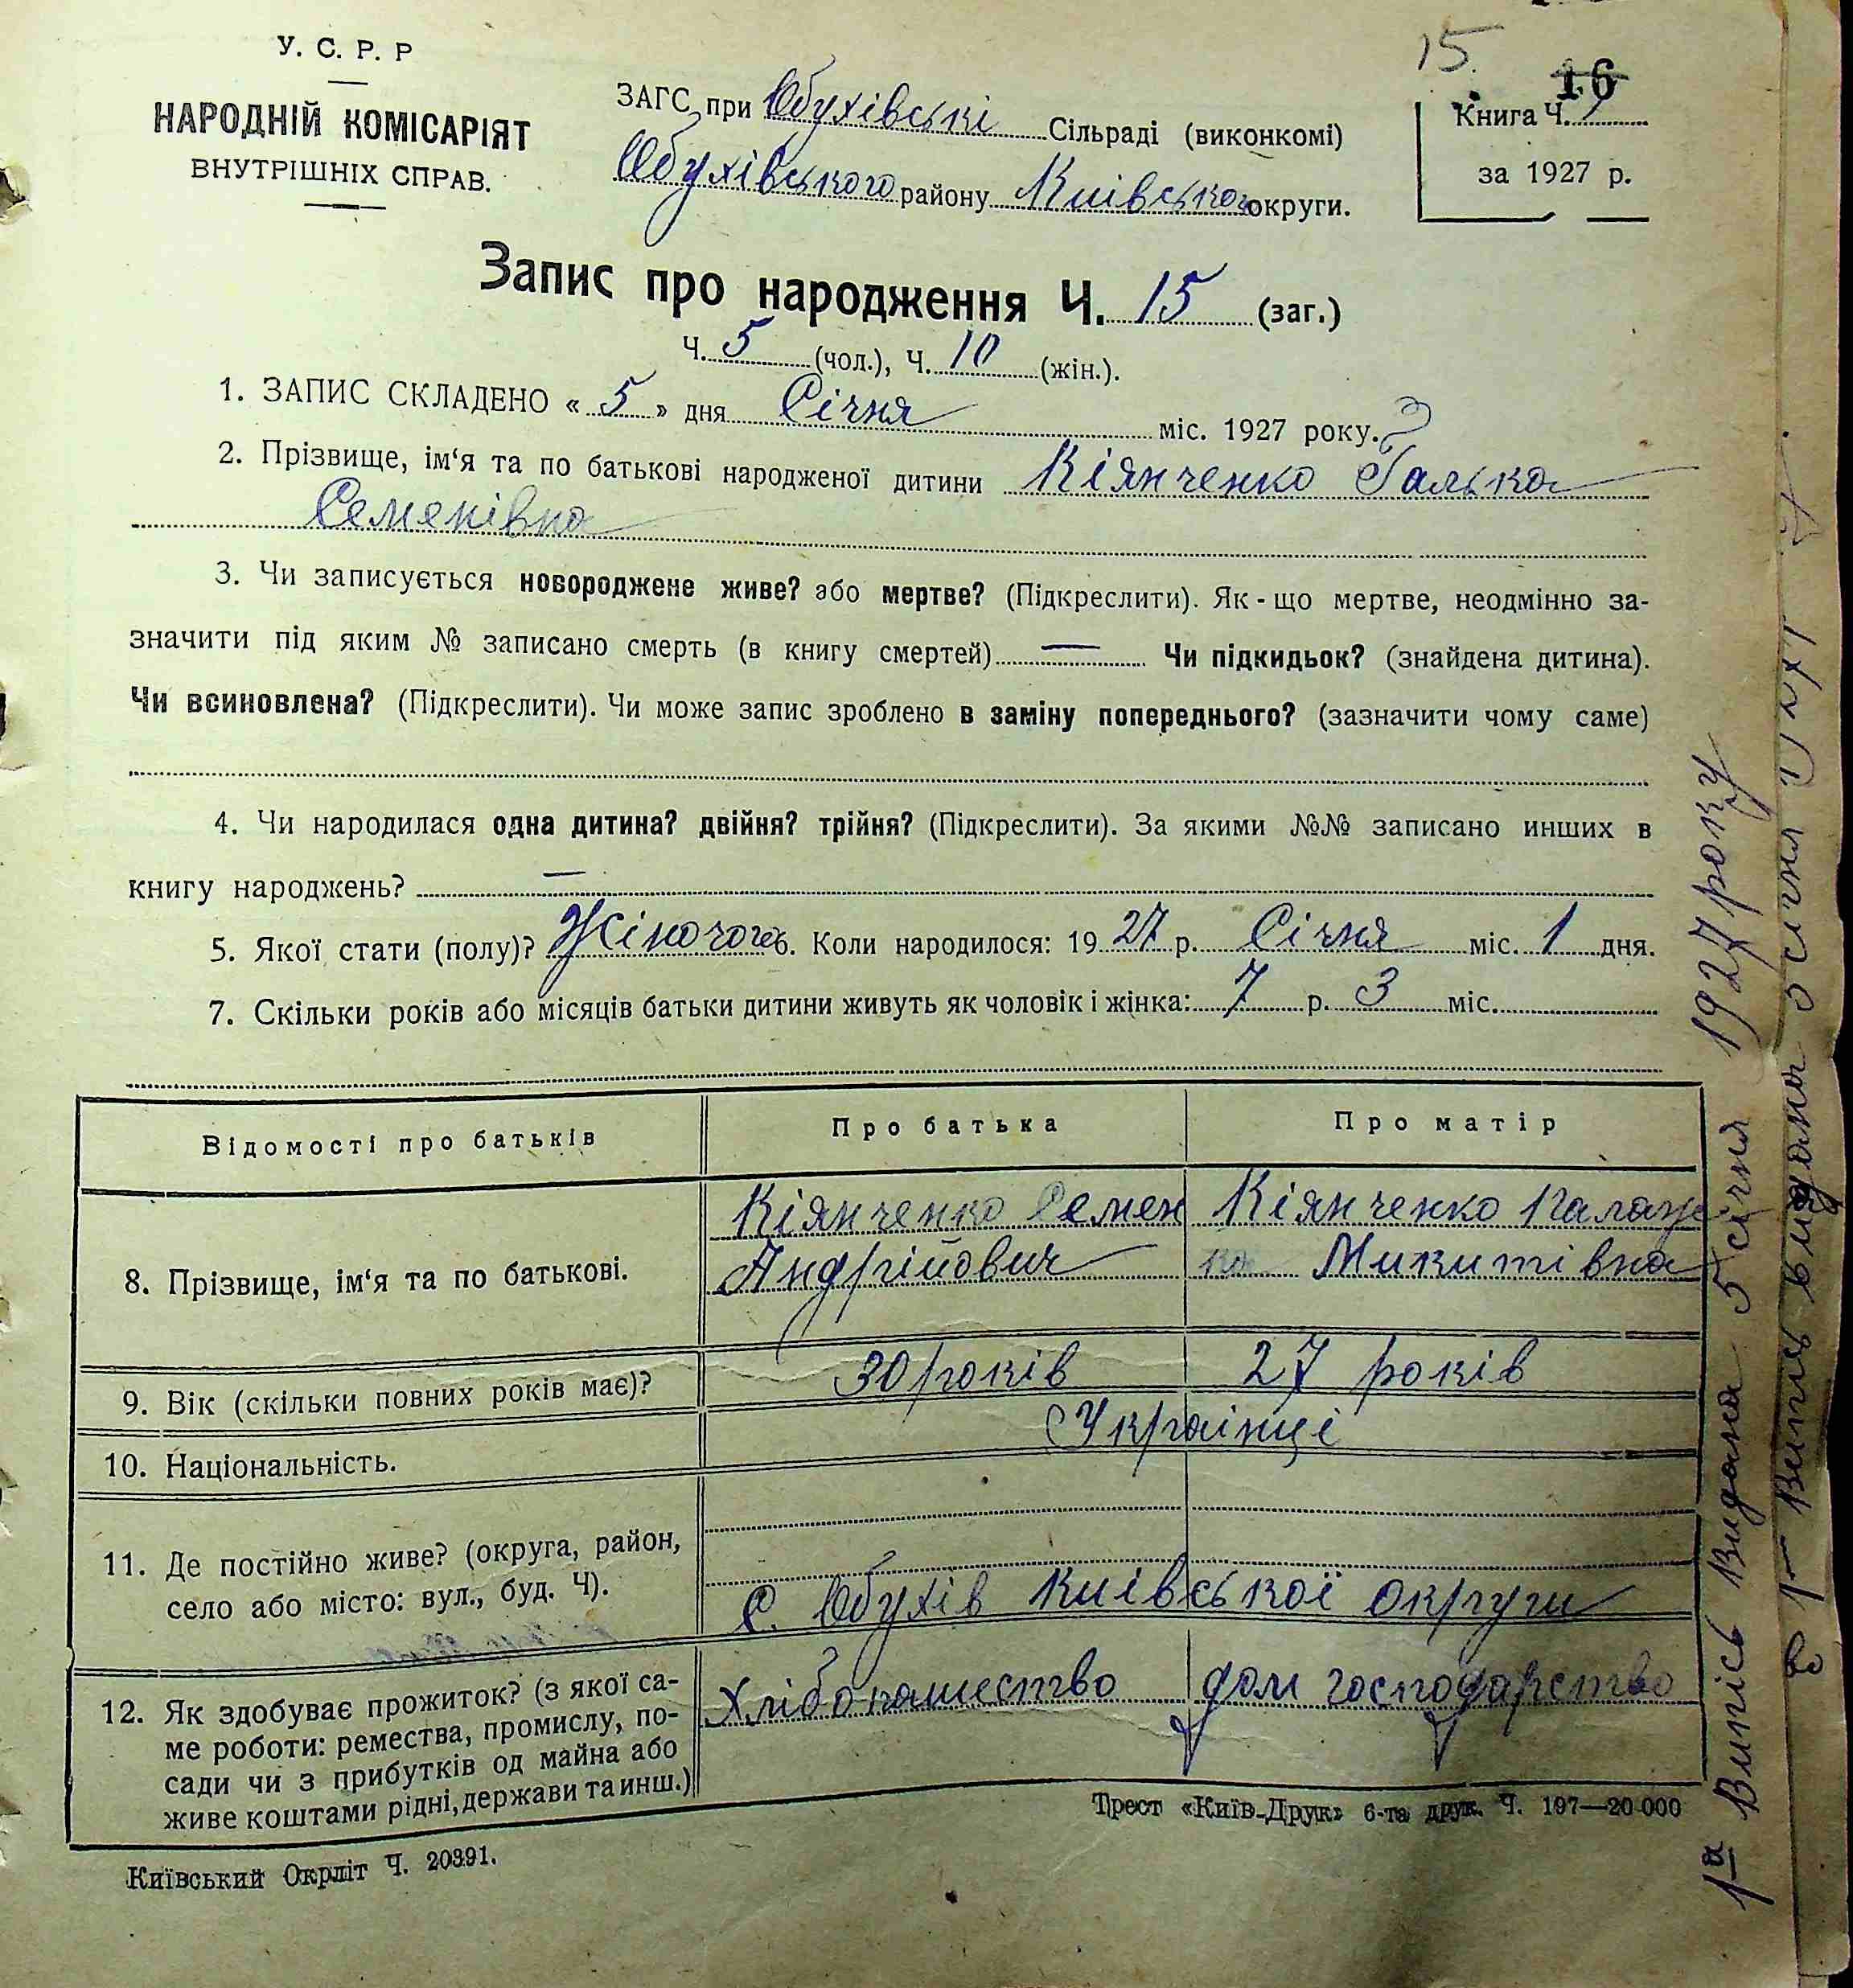 У. С. Р. Р
НАРОДНІЙ КОМІСАРІЯТ
ВНУТРІШНІХ СПРАВ.
15
16
ЗАГС при Обухівські Сільраді (виконкомі)
Обухівського району Київсько округи.
Книга Ч. 1
за 1927 р.
Запис про народження Ч. 15 (заг.)
Ч. 5 (чол.), Ч. 10 (жін.).
1. ЗАПИС СКЛАДЕНО « 5 » дня Січня міс. 1927 року.
2. Прізвище, ім‘я та по батькові народженої дитини Кіянченко Галька
Семенівна
3. Чи записується новороджене живе? або мертве? (Підкреслити). Як-що мертве, неодмінно за-
значити під яким № записано смерть (в книгу смертей) — Чи підкидьок? (знайдена дитина).
Чи всиновлена? (Підкреслити). Чи може запис зроблено в заміну попереднього? (зазначити чому саме)
4. Чи народилася одна дитина? двійня? трійня? (Підкреслити). За якими №№ записано инших в
книгу народжень? —
5. Якої стати (полу)? Жіночого 6. Коли народилося: 1927 р. Січня міс. 1 дня.
7. Скільки років або місяців батьки дитини живуть як чоловік і жінка: 7 р. 3 міс.
Відомості про батьків
Про батька
Про матір
8. Прізвище, ім‘я та по батькові.
Кіянченко Семен
Андрійович
Кіянченко Палаж
ка Микитівна
9. Вік (скільки повних років має)?
30 років
27 років
10. Національність.
Українці
11. Де постійно живе? (округа, район,
село або місто: вул., буд. Ч).
С. Обухів Київської округи
12. Як здобуває прожиток? (з якої са-
ме роботи: ремества, промислу, по-
сади чи з прибутків од майна або
живе коштами рідні, держави та инш.)
Хлібопашество
дом господарство
Трест «Київ-Друк» 6-та друк. Ч. 197—20.000
Київський Окрліт Ч. 20391.
1а Випісь Видана 5 січня 1927 року
Випись видана 5 січня